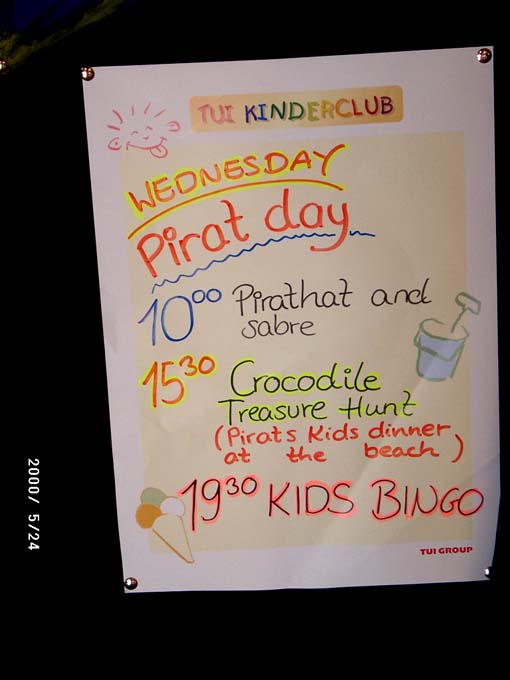 TUI KINDERCLUB
WEDNESDAY
Pirat day
10⁰⁰ Pirathat and
sabre
15³⁰ Crocodile
Treasure Hunt
(Pirats Kids dinner
at the beach)
19³⁰ KIDS BINGO
TUI GROUP
2000/ 5/24